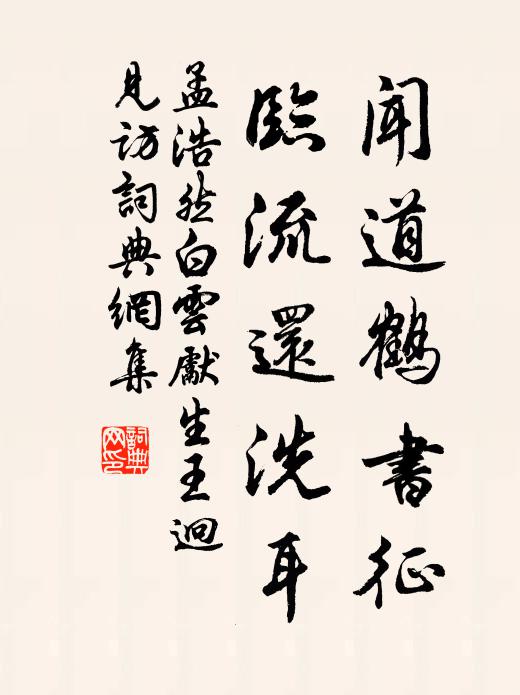 聞道鶴書征
臨流還洗耳
孟浩然白雲獻生王迥
見訪詞典網集
詞典
网印